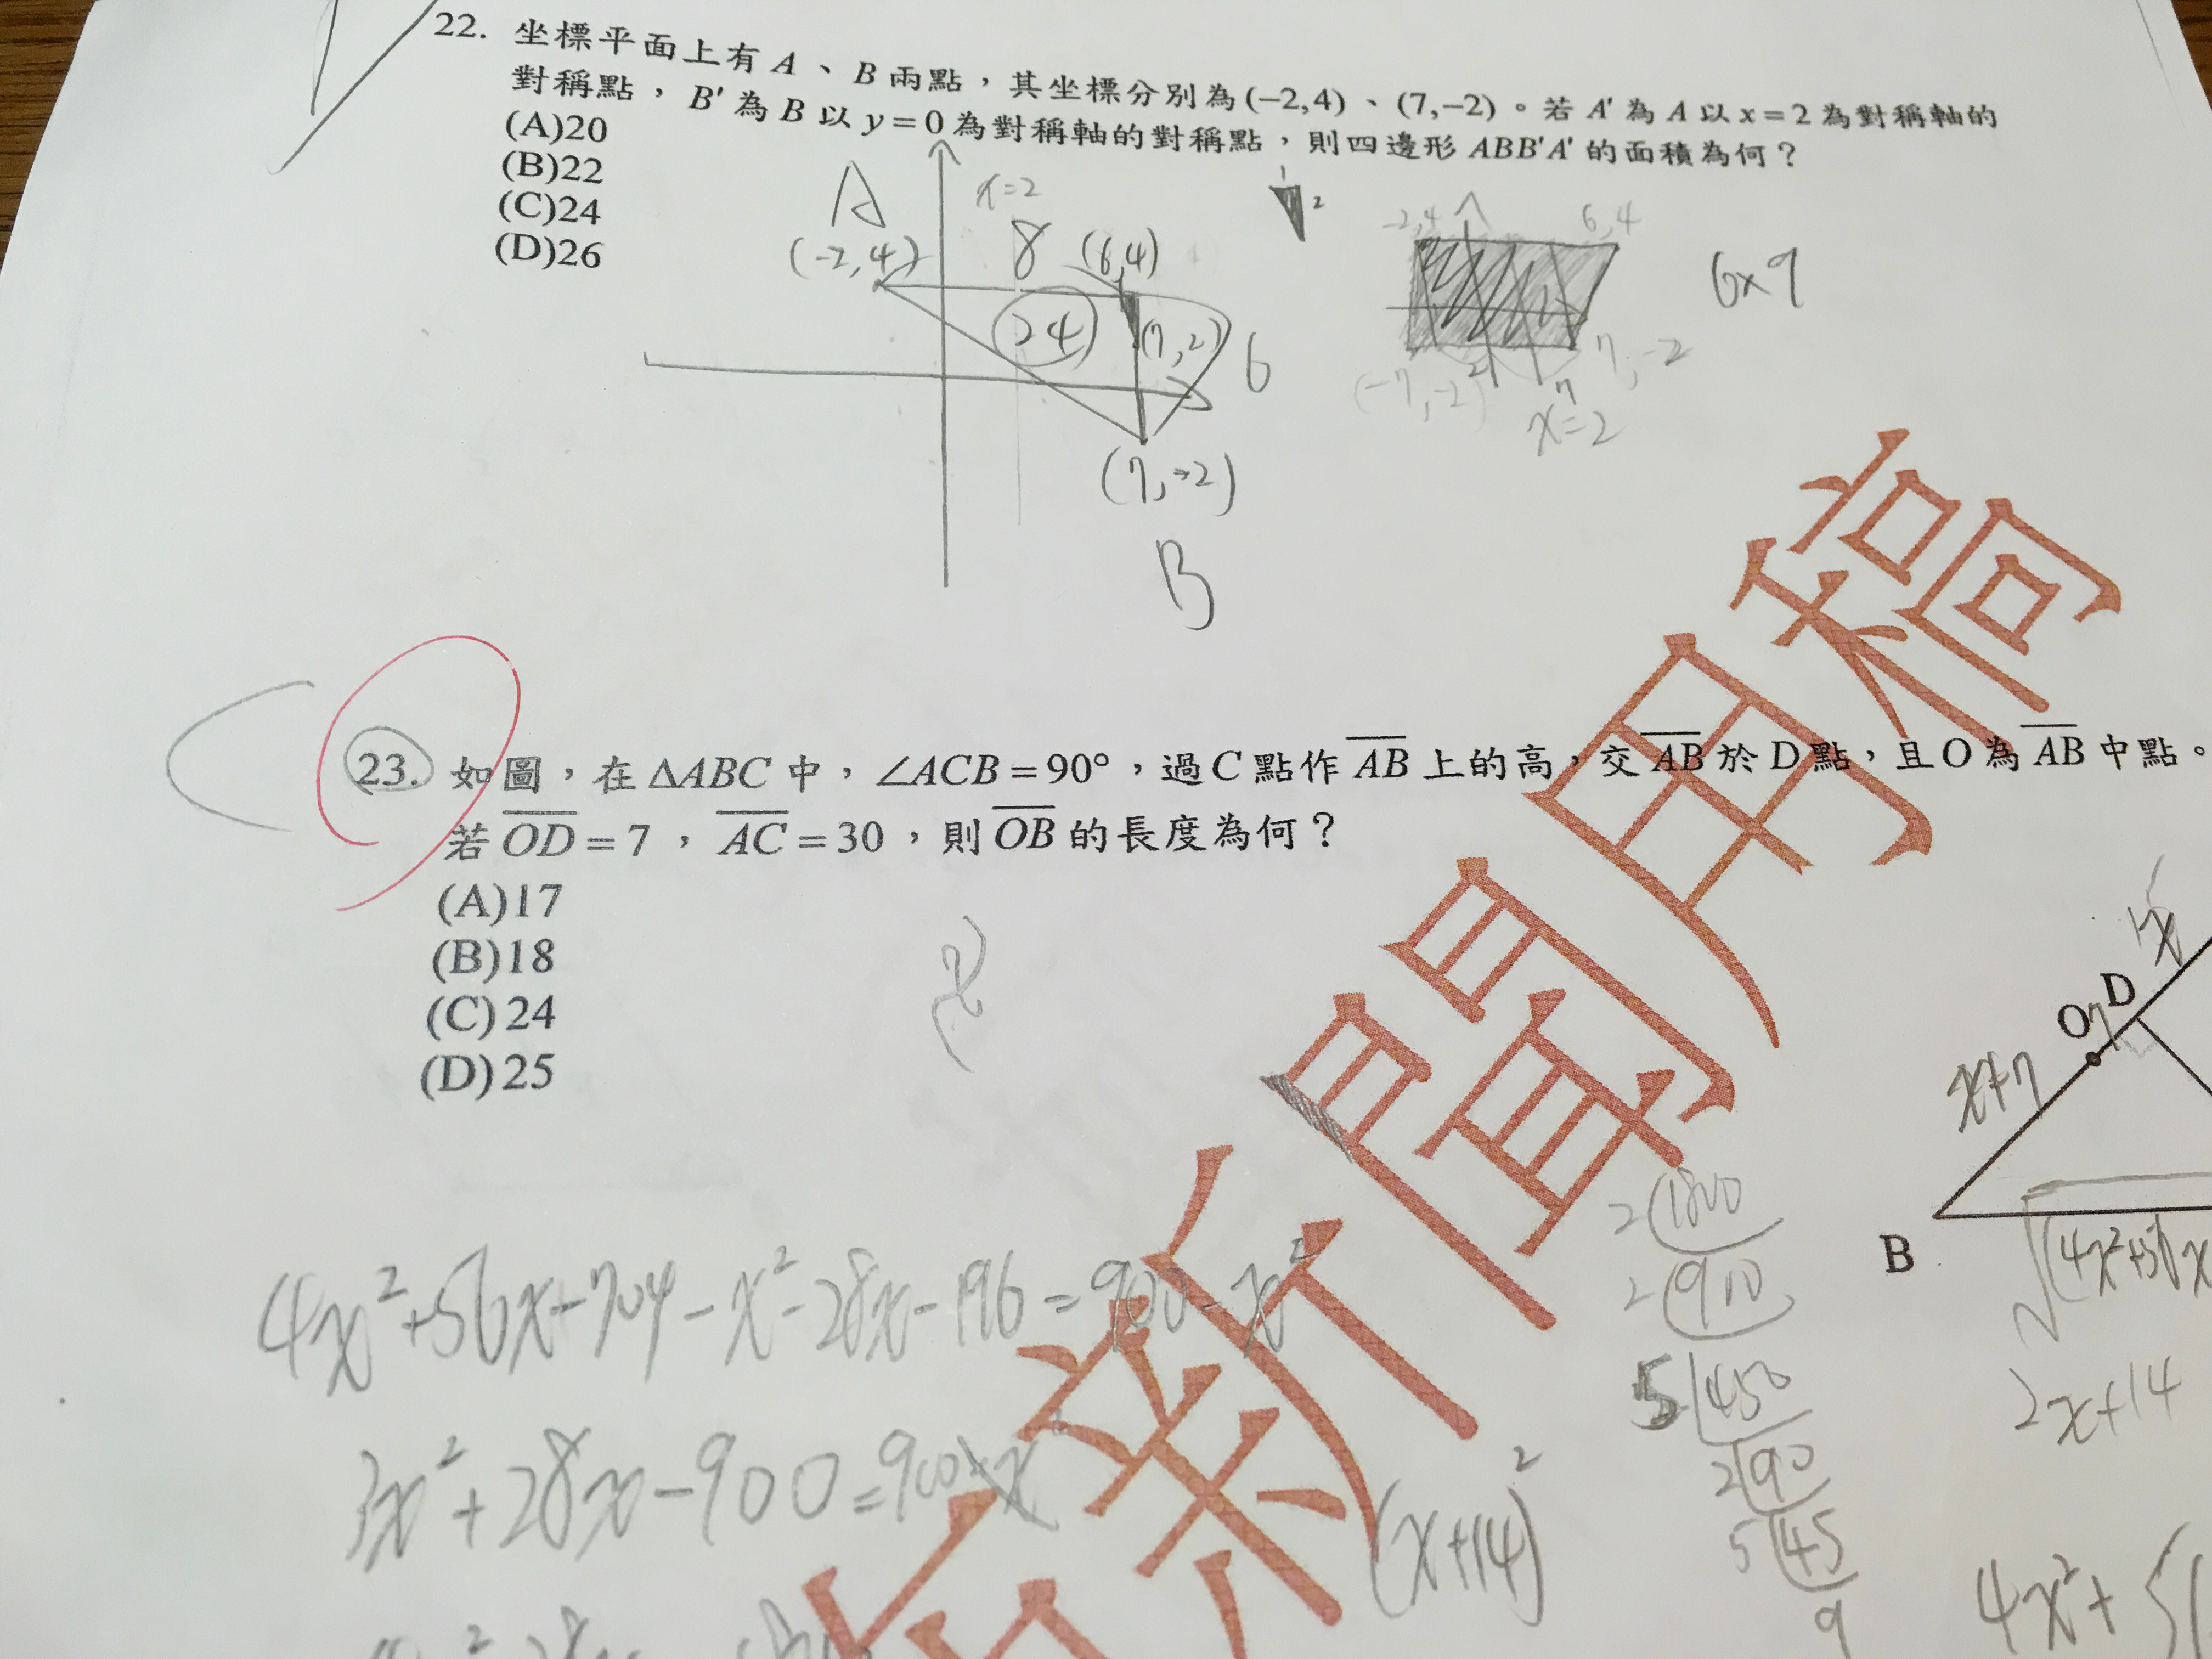 22. 坐標平面上有 A、B 兩點，其坐標分別為(−2,4)、(7,−2)。若 A′ 為 A 以 x=2 為對稱軸的
對稱點，B′ 為 B 以 y=0 為對稱軸的對稱點，則四邊形 ABB′A′ 的面積為何？
(A)20
(B)22
(C)24
(D)26
A
x=2
(-2,4)
8
(6,4)
24
(7,2)
6
(7,-2)
B
2
-2,4
6,4
6×9
(-7,-2)
7,-2
x=2
23. 如圖，在 ΔABC 中，∠ACB=90°，過 C 點作 AB 上的高，交 AB 於 D 點，且 O 為 AB 中點。
若 OD=7，AC=30，則 OB 的長度為何？
(A)17
(B)18
(C)24
(D)25
x
O
7
D
x+7
B
4x²+56x+704-x²-28x-196=900-x²
3x²+28x-900=900-x
(x+14)²
2 1800
2 910
5 450
2 90
5 45
9
2x+14
4x²+
新聞用稿